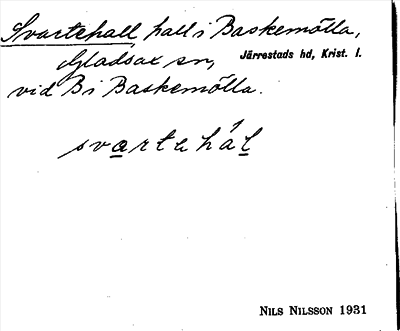 Svartehall, hall i Baskemölla,
Gladsax sn, Järrestads hd, Krist. l.
vid B i Baskemölla.
svarte hál
NILS NILSSON 1931